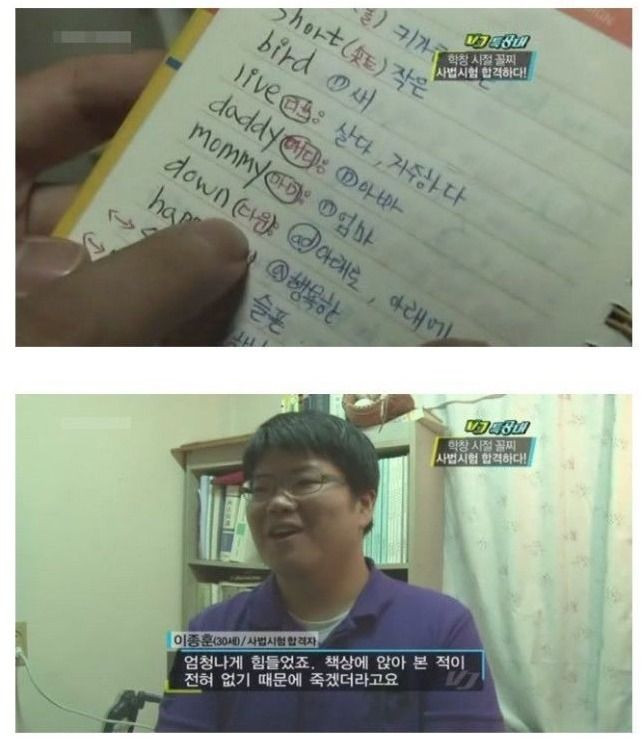 VJ 특공대
학창 시절 꼴찌
사법시험 합격하다!
short(숏트) 작은
bird ⓝ새
live(리브): 살다, 거주하다
daddy(대디): ⓝ아빠
mommy(마미): ⓝ엄마
down(다운): ad아래로, 아래에
ⓐ행복한
슬픈
VJ 특공대
학창 시절 꼴찌
사법시험 합격하다!
이종훈(30세)/사법시험 합격자
엄청나게 힘들었죠. 책상에 앉아 본 적이
전혀 없기 때문에 죽겠더라고요
VJ